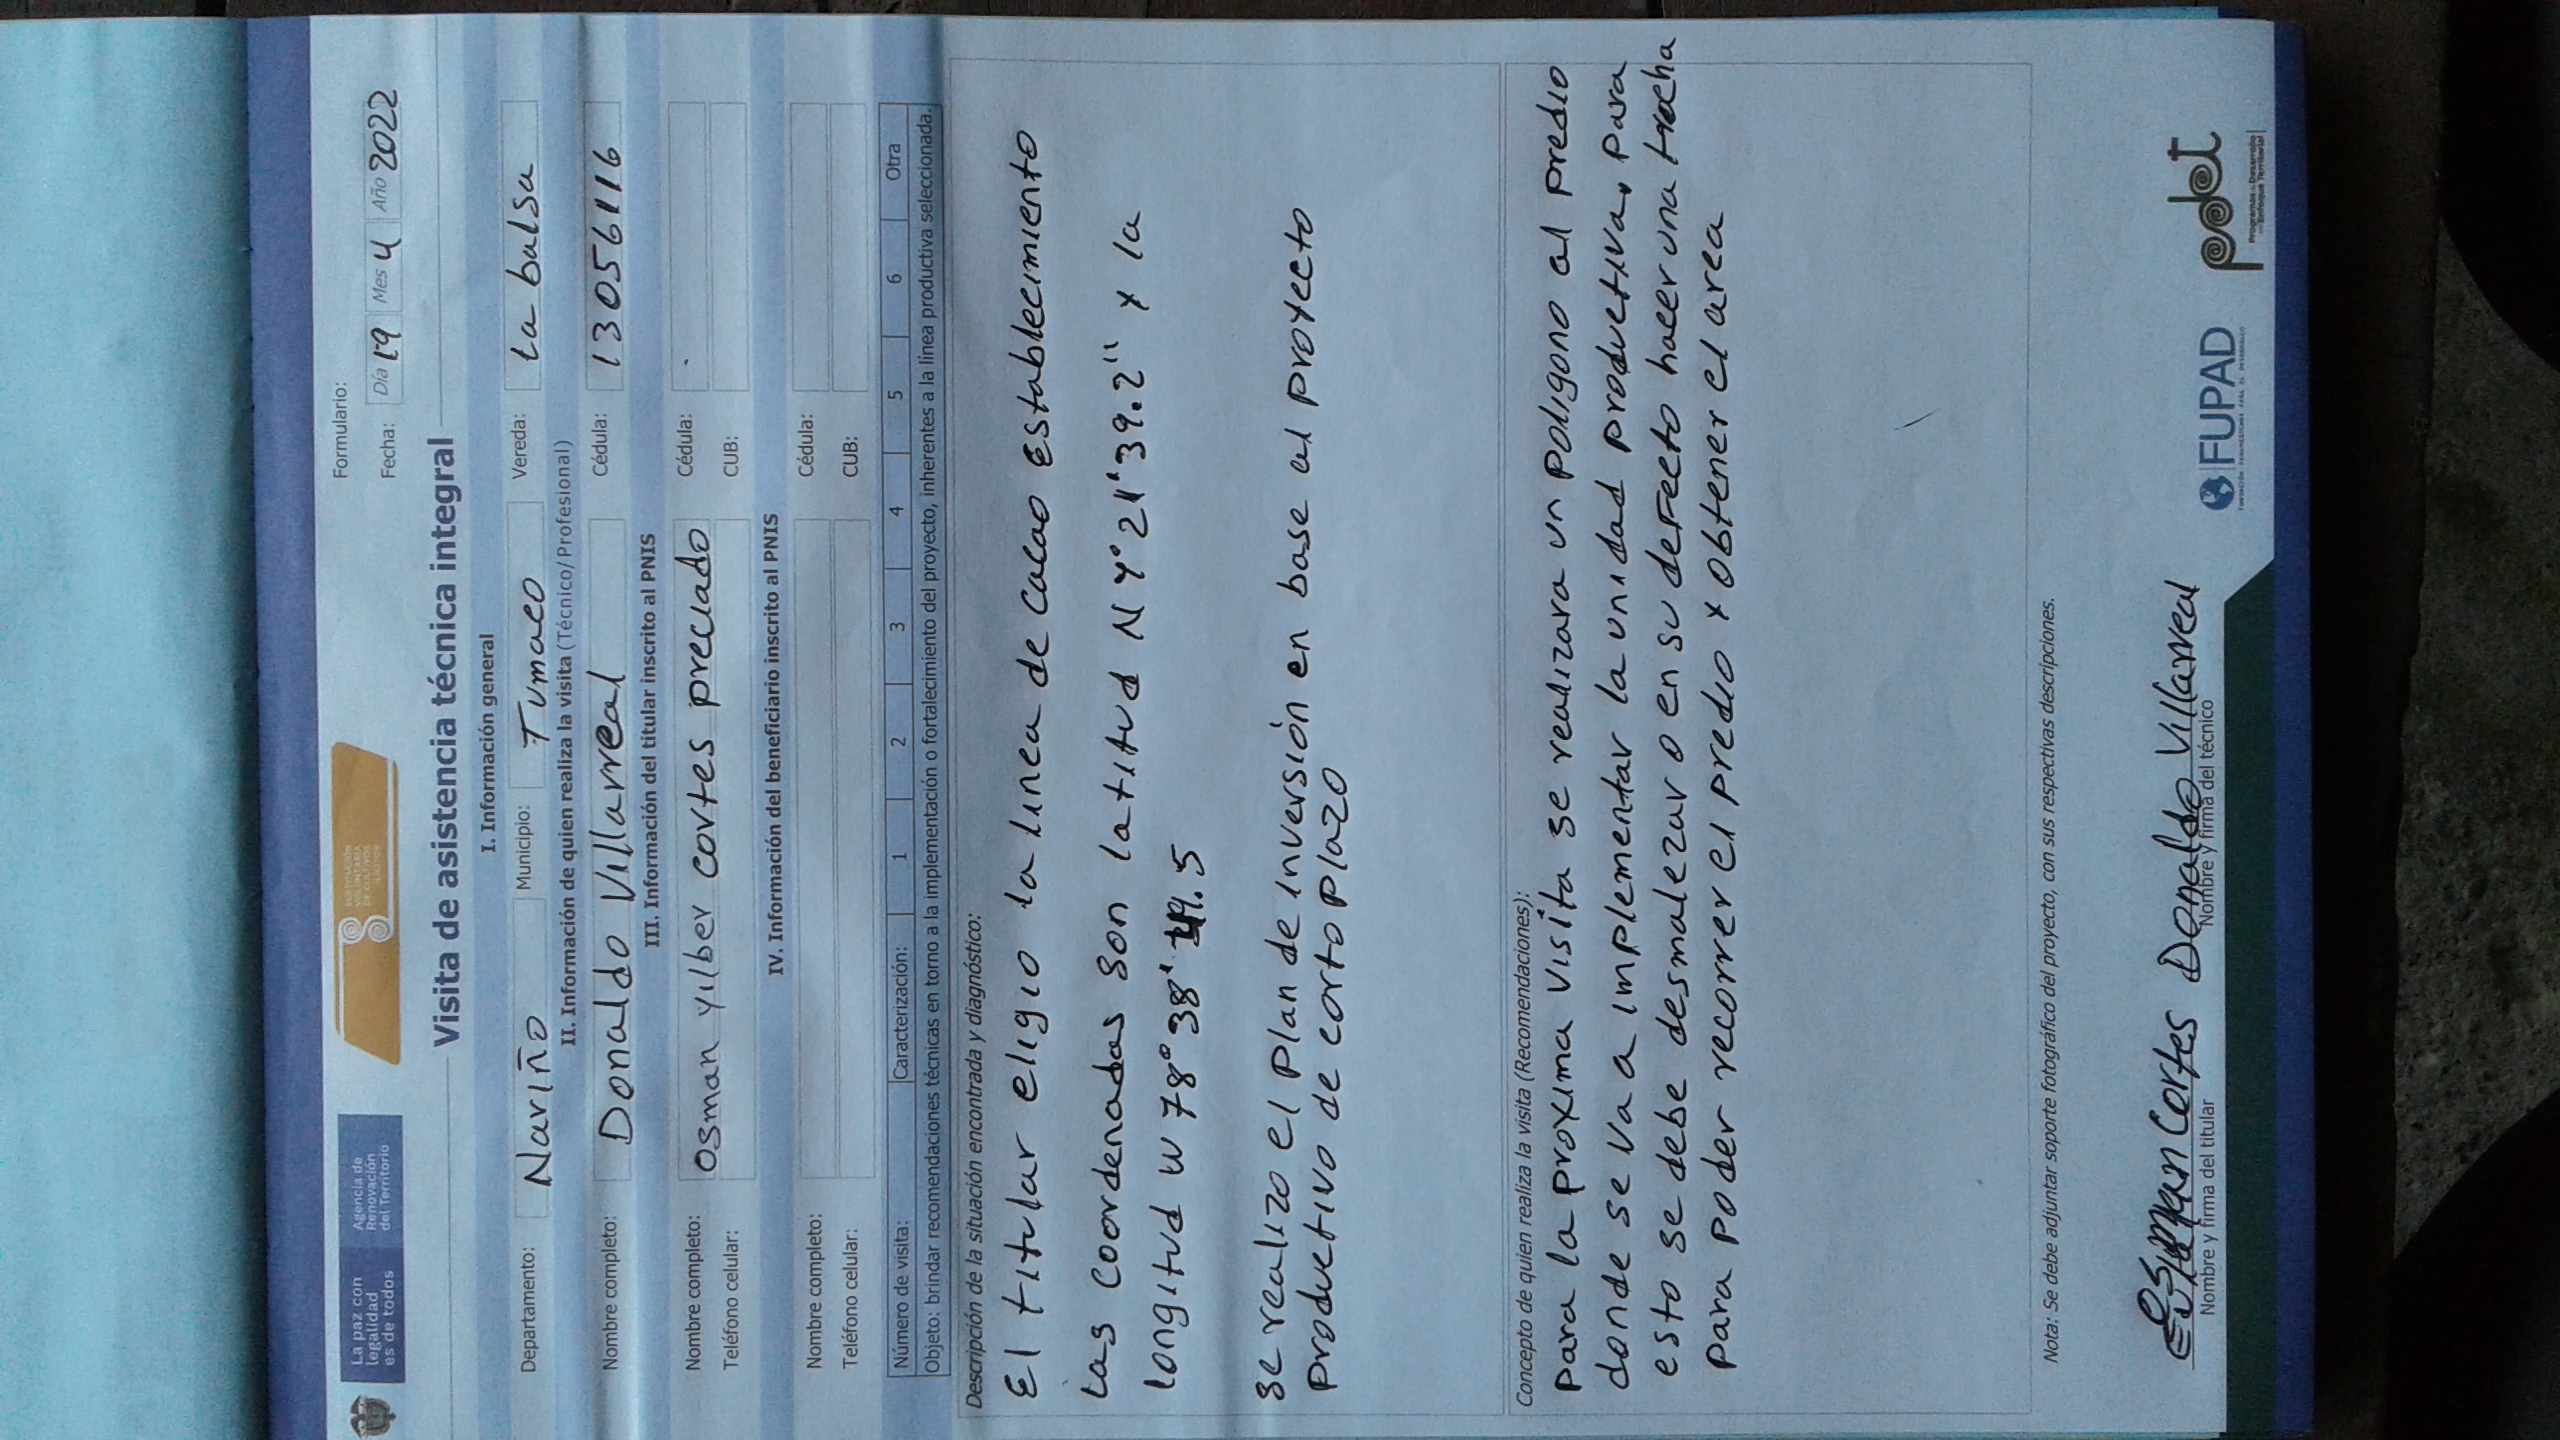 La paz con
legalidad
es de todos
Agencia de
Renovación
del Territorio
SUSTITUCIÓN
VOLUNTARIA
DE CULTIVOS
Formulario:
Fecha: Día 19 Mes 4 Año 2022
Visita de asistencia técnica integral
I. Información general
Departamento: Nariño Municipio: Tumaco Vereda: La balsa
II. Información de quien realiza la visita (Técnico/Profesional)
Nombre completo: Donaldo Villarreal Cédula: 13056116
III. Información del titular inscrito al PNIS
Nombre completo: Osman yilber cortes preciado Cédula:
Teléfono celular: CUB:
IV. Información del beneficiario inscrito al PNIS
Nombre completo: Cédula:
Teléfono celular: CUB:
Número de visita: Caracterización: 1 2 3 4 5 6 Otra
Objeto: brindar recomendaciones técnicas en torno a la implementación o fortalecimiento del proyecto, inherentes a la línea productiva seleccionada.
Descripción de la situación encontrada y diagnóstico:
El titular eligio la linea de cacao establecimiento
Las coordenadas son latitud N 1° 21' 39.2" y la
longitud W 78° 38' .5
se realizo el plan de inversión en base al proyecto
productivo de corto plazo
Concepto de quien realiza la visita (Recomendaciones):
para la proxima visita se realizara un poligono al predio
donde se va a implementar la unidad productiva, para
esto se debe desmalezar o en su defecto hacer una trocha
para poder recorrer el predio y obtener el area
Nota: Se debe adjuntar soporte fotográfico del proyecto, con sus respectivas descripciones.
Osman Cortes Donaldo Villarreal
Nombre y firma del titular Nombre y firma del técnico
FUPAD
FUNDACIÓN PANAMERICANA PARA EL DESARROLLO
pdet
Programas de Desarrollo
con Enfoque Territorial